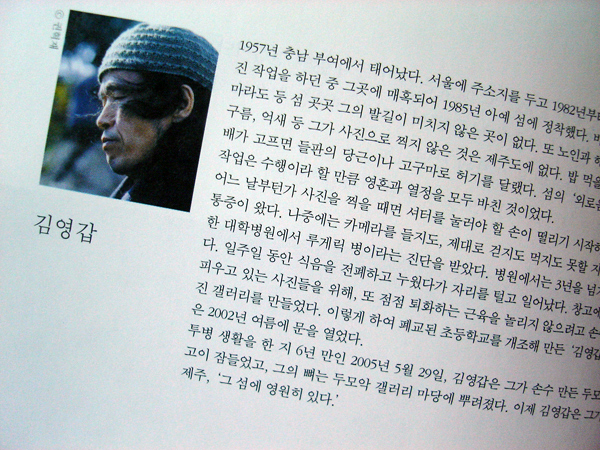 김영갑
1957년 충남 부여에서 태어났다. 서울에 주소지를 두고 1982년부터
진 작업을 하던 중 그곳에 매혹되어 1985년 아예 섬에 정착했다. 바
마라도 등 섬 곳곳 그의 발길이 미치지 않은 곳이 없다. 또 노인과 해
구름, 억새 등 그가 사진으로 찍지 않은 것은 제주도에 없다. 밥 먹을
배가 고프면 들판의 당근이나 고구마로 허기를 달랬다. 섬의 '외로움
작업은 수행이라 할 만큼 영혼과 열정을 모두 바친 것이었다.
어느 날부턴가 사진을 찍을 때면 셔터를 눌러야 할 손이 떨리기 시작하
통증이 왔다. 나중에는 카메라를 들지도, 제대로 걷지도 먹지도 못할 지
한 대학병원에서 루게릭 병이라는 진단을 받았다. 병원에서는 3년을 넘기
다. 일주일 동안 식음을 전폐하고 누웠다가 자리를 털고 일어났다. 창고에
피우고 있는 사진들을 위해, 또 점점 퇴화하는 근육을 놀리지 않으려고 손
진 갤러리를 만들었다. 이렇게 하여 폐교된 초등학교를 개조해 만든 '김영갑
은 2002년 여름에 문을 열었다.
투병 생활을 한 지 6년 만인 2005년 5월 29일, 김영갑은 그가 손수 만든 두모
고이 잠들었고, 그의 뼈는 두모악 갤러리 마당에 뿌려졌다. 이제 김영갑은 그가
제주, '그 섬에 영원히 있다.'